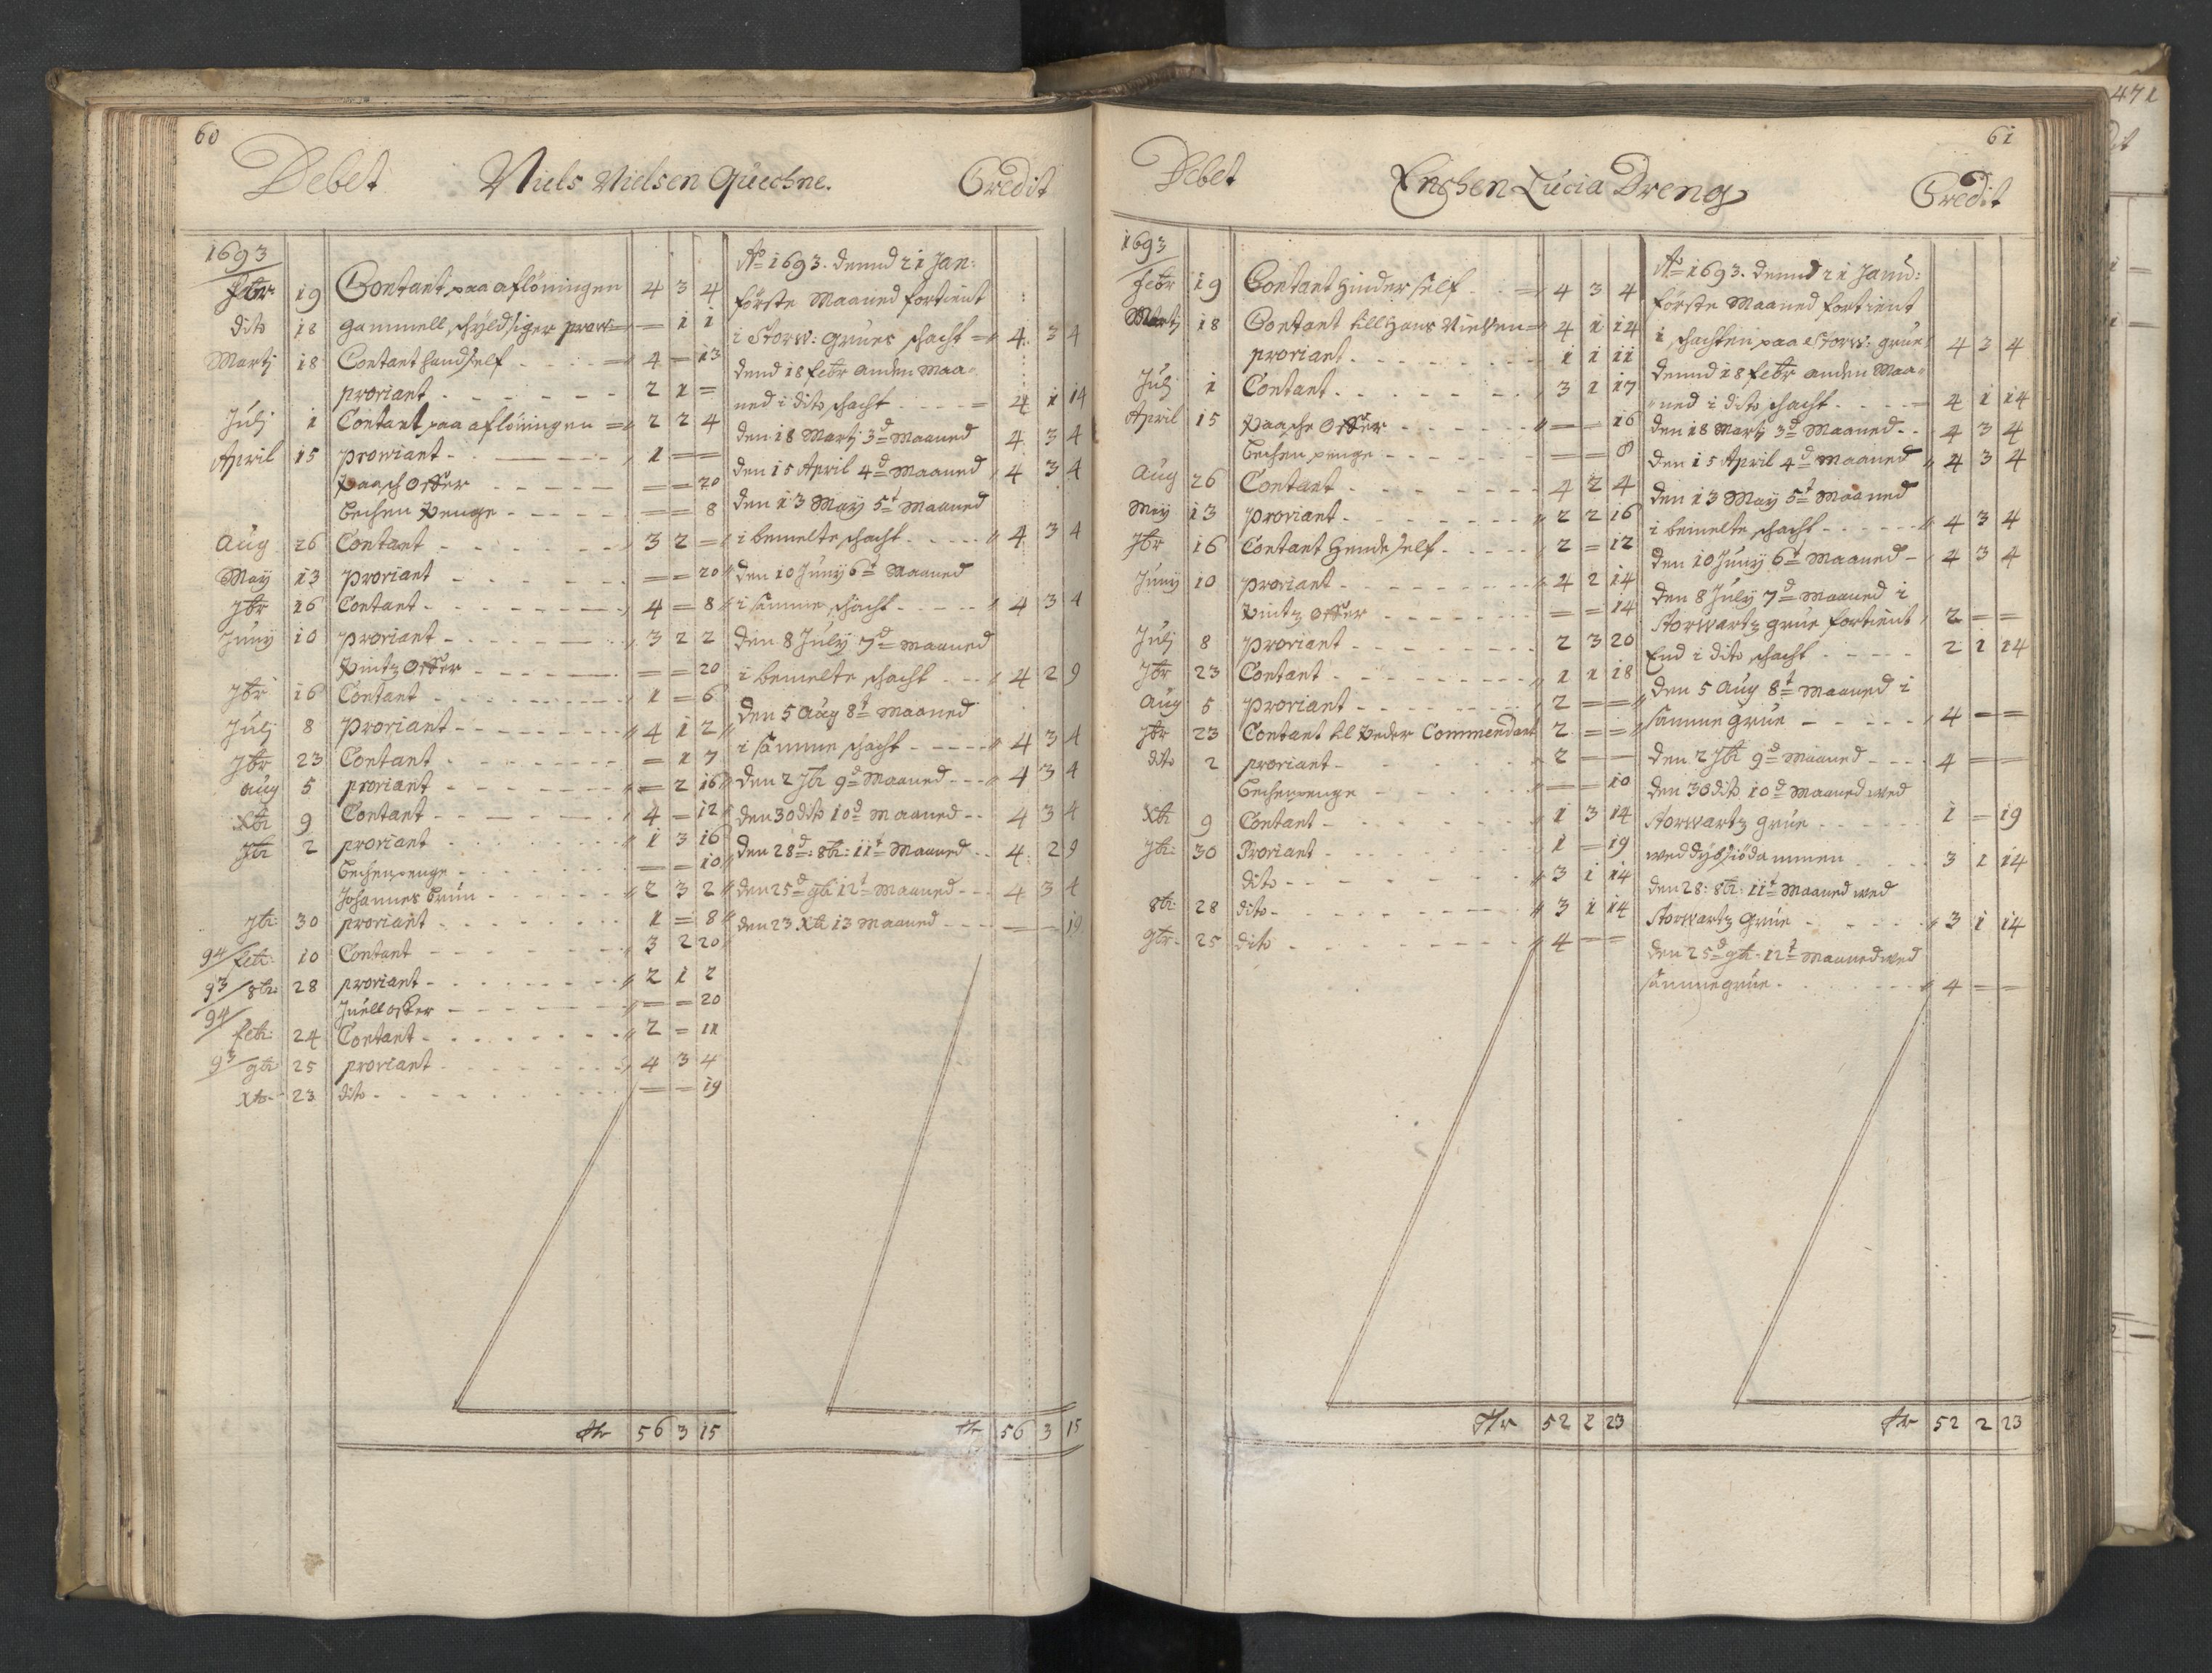 60
Debet Niels Nielsen Quechne. Credit
1693
Febr 19 Contant paa aflöningen 4 3 4
dito 18 gammell schyldsiger prov: = – 1 1
Martj 18 Contant handself - - - = 4 – 13
proviant - - - - - - 2 1 =
Julj 1 Contant paa aflöningen = 2 2 4
April 15 proviant - - - - - 1 – –
Paasch Offer - - - - - – – 20
Bechen Penge - - - - - – – 8
Aug 26 Contant - - - - - - 3 2 –
May 13 proviant - - - - - - – – 20
7br 16 Contant - - - - - - 4 – 8
Juny 10 proviant - - - - - - 3 2 2
Pintz Offer - - - - - – – 20
7br 16 Contant - - - - - - 1 – 6
Julj 8 Proviant - - - - - - 4 1 2
7br 23 Contant - - - - - - – 1 7
aug 5 proviant - - - - - - – 2 16
Xbr 9 Contant - - - - - - 4 – 12
7br 2 proviant - - - - - - 1 3 16
Bechenpenge - - - - - – – 10
Johannes Brun - - - - - 2 3 2
7br: 30 proviant - - - - - - 1 – 8
94/ Febr: 10 Contant - - - - - - 3 2 20
93/ 8br: 28 proviant - - - - - - 2 1 2
Juell offer - - - - - – – 20
94/ Febr: 24 Contant - - - - - - 2 – 11
93/ 9br 25 proviant - - - - - - 4 3 4
Xbr- 23 dito - - - - - - – – 19
Thr 56 3 15
Ao 1693. dennd 21 Jan:
förste Maaned fortient
i Storw: Grues schacht = 4 3 4
dend 18 Febr anden Maa=
ned i dito schacht - - - = 4 1 14
den 18 Martj 3d Maaned 4 3 4
den 15 April 4d Maaned 4 3 4
den 13 May 5t Maaned
i bemelte schacht - - - - 4 3 4
den 10 Juny 6t Maaned
i samme schacht - - - - 4 3 4
den 8 July 7d Maaned
i bemelte schacht - - - 4 2 9
den 5 Aug 8t Maaned
i samme schacht - - - - 4 3 4
den 2 7br 9d Maaned - - - 4 3 4
den 30 dito 10d Maaned - - 4 3 4
den 28d: 8br: 11t Maaned - - 4 2 9
den 25d 9br 12t Maaned - - - 4 3 4
den 23 Xbr 13 Maaned - - - – – 19
Thr 56 3 15
61
Debet Enchen Lucia Dreng Credit
1693
Febr 19 Contant hinder self - - = 4 3 4
Martj 18 Contant till Hans Nielsen = 4 1 14
proviant - - - - - - 1 1 11
Julj 1 Contant - - - - - - 3 1 17
April 15 Paasche Offer - - - - - – – 16
Bechen penge - - - - - – – 8
Aug 26 Contant - - - - - - 4 2 4
May 13 proviant - - - - - - 2 2 16
7br 16 Contant hende self - - - - 2 – 12
Juny 10 proviant - - - - - - 4 2 14
Pintz Offer - - - - - – – 14
Julj 8 proviant - - - - - - 2 3 20
7br 23 Contant - - - - - - 1 1 18
Aug 5 proviant - - - - - - 2 – –
7br 23 Contant til Peder Commendant 2 – –
dito 2 proviant - - - - - - 2 – –
Bechenpenge - - - - - – – 10
Xbr 9 Contant - - - - - - 1 3 14
7br: 30 Proviant - - - - - - 1 – 19
dito - - - - - - 3 1 14
8br 28 dito - - - - - - 3 1 14
9br- 25 dito - - - - - - 4 – –
Thr 52 2 23
Ao 1693. dennd 21 Janu:
förste Maaned fortient
i schachten paa Storw: grue 4 3 4
dennd 18 Febr anden Maa=
ned i dito schacht - - - 4 1 14
den 18 Martj 3d Maaned - - 4 3 4
den 15 April 4d Maaned 4 3 4
den 13 May 5t Maaned
i bemelte schacht - - - - 4 3 4
den 10 Juny 6t Maaned - 4 3 4
den 8 July 7d Maaned i
Storwartz grue fortient 2 – –
End i dito schacht - - - - 2 1 14
den 5 Aug 8t Maaned i
samme grue - - - - 4 – –
den 2 7br 9d Maaned - - - 4 – –
den 30 dito 10d Maaned wed
Storwartz grue - - - - 1 – 19
wed dybsiödammen - - - 3 1 14
den 28: 8br: 11t Maaned wed
Storwartz Grue - - - - 3 1 14
den 25d 9br: 12t Maaned wed
samme grue - - - - 4 – –
Thr 52 2 23
471